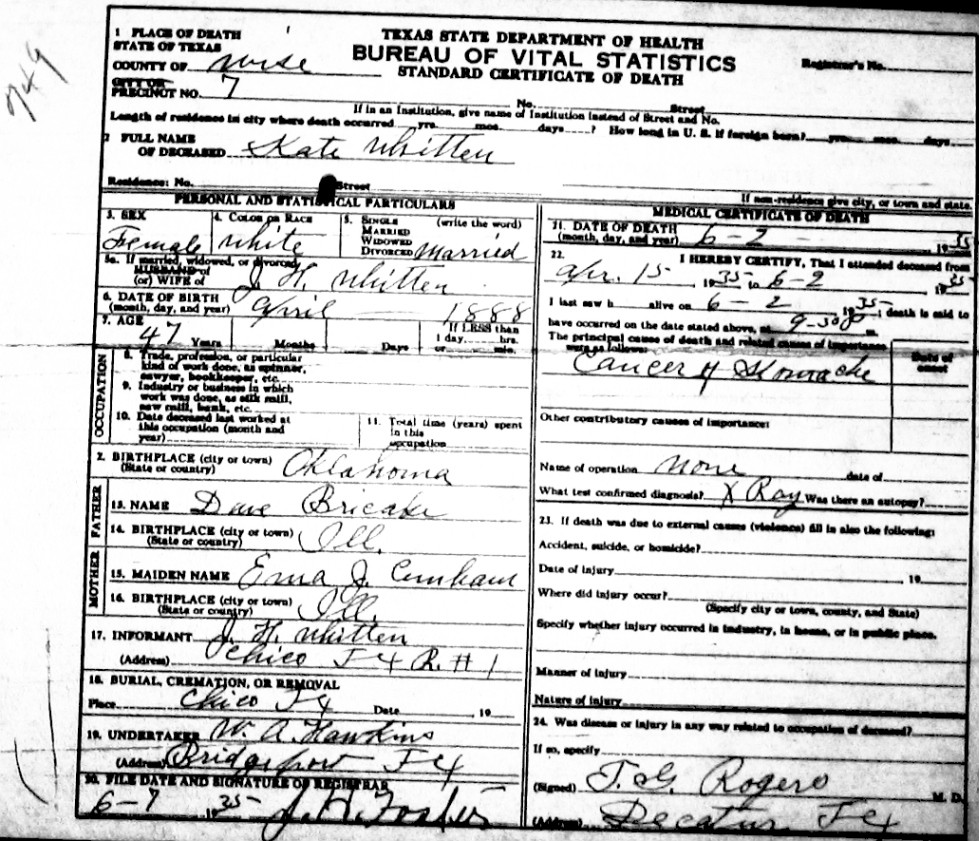 749
TEXAS STATE DEPARTMENT OF HEALTH
BUREAU OF VITAL STATISTICS
STANDARD CERTIFICATE OF DEATH
Registrar's No.
1 PLACE OF DEATH
STATE OF TEXAS
COUNTY OF Wise
CITY OR
PRECINCT NO. 7
No. Street
If in an Institution, give name of Institution instead of Street and No.
Length of residence in city where death occurred yrs. mos. days ? How long in U. S. if foreign born? yrs. mos. days
2 FULL NAME
OF DECEASED Kate Whitten
Residence: No. Street
If non-residence give city, or town and state.
PERSONAL AND STATISTICAL PARTICULARS
3. SEX
Female
4. COLOR OR RACE
White
5. SINGLE (write the word)
MARRIED
WIDOWED
DIVORCED Married
5a. If married, widowed, or divorced
HUSBAND of
(or) WIFE of J. H. Whitten
6. DATE OF BIRTH
(month, day, and year) April 1888
7. AGE
47 Years Months Days
If LESS than
1 day hrs.
or min.
OCCUPATION
8. Trade, profession, or particular
kind of work done, as spinner,
sawyer, bookkeeper, etc.
9. Industry or business in which
work was done, as silk mill,
saw mill, bank, etc.
10. Date deceased last worked at
this occupation (month and
year)
11. Total time (years) spent
in this
occupation
2. BIRTHPLACE (city or town)
(State or country) Oklahoma
FATHER
13. NAME Dave
14. BIRTHPLACE (city or town)
(State or country) Ill.
MOTHER
15. MAIDEN NAME Ema J.
16. BIRTHPLACE (city or town)
(State or country) Ill.
17. INFORMANT J. H. Whitten
(Address) Chico Tex R. # 1
18. BURIAL, CREMATION, OR REMOVAL
Place Chico Tex Date 19
19. UNDERTAKER W. A. Hawkins
(Address) Bridgeport Tex
20. FILE DATE AND SIGNATURE OF REGISTRAR
6-7 1935 J. H.
MEDICAL CERTIFICATE OF DEATH
21. DATE OF DEATH
(month, day, and year) 6-2- 1935
22. I HEREBY CERTIFY, That I attended deceased from
Apr. 15, 1935 to 6-2, 1935
I last saw h alive on 6-2 1935; death is said to
have occurred on the date stated above, at 9-30 m.
The principal causes of death and related causes of importance
were as follows:
Date of
onset
Cancer of Stomache
Other contributory causes of importance:
Name of operation None date of
What test confirmed diagnosis? X Ray Was there an autopsy?
23. If death was due to external causes (violence) fill in also the following:
Accident, suicide, or homicide?
Date of injury 19
Where did injury occur?
(Specify city or town, county, and State)
Specify whether injury occurred in industry, in home, or in public place.
Manner of injury
Nature of injury
24. Was disease or injury in any way related to occupation of deceased?
If so, specify
(Signed) T. G. Rogers M. D.
(Address) Decatur Tex